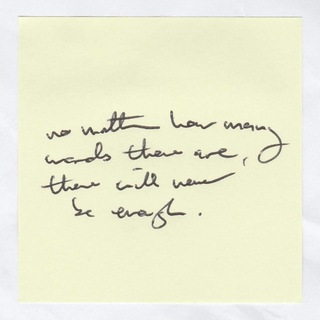 no matter how many
words there are,
there will never
be enough.